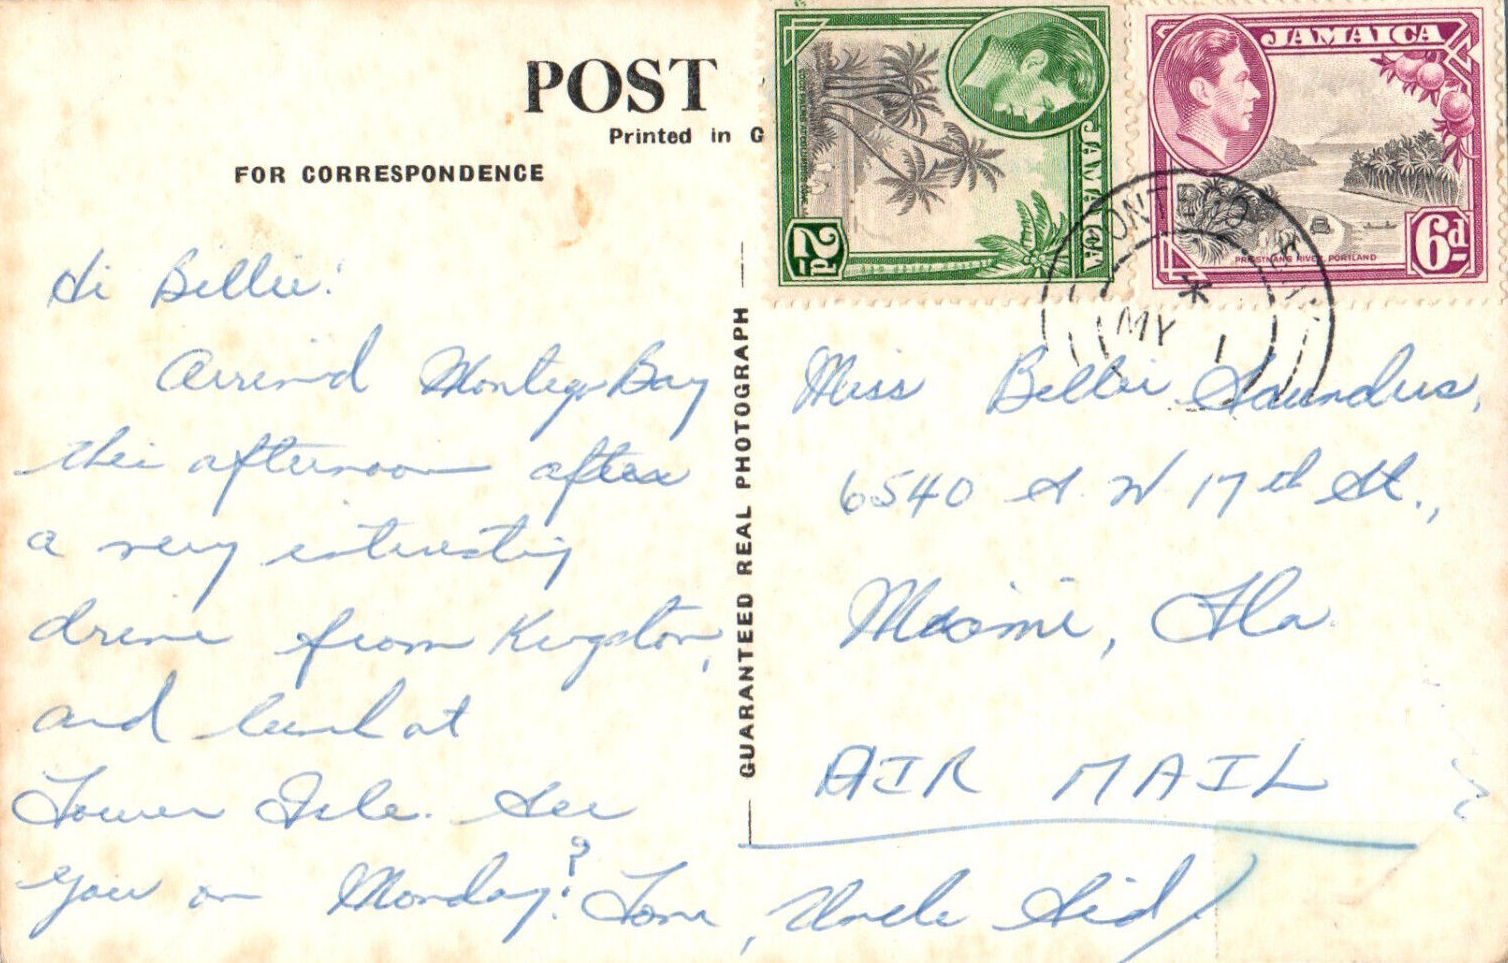 POST
Printed in G
FOR CORRESPONDENCE
Hi Billie!
Arrived Montego Bay
this afternoon after
a very interesting
drive from Kingston,
and lunch at
Tower Isle. See
you on Monday? Love, Uncle Sid
GUARANTEED REAL PHOTOGRAPH
JAMAICA
2d
JAMAICA
6d
PRIESTMANS RIVER, PORTLAND
MONTEGO BAY
MY 1
Miss Billie Saunders,
6540 S. W 17th St.,
Miami, Fla.
AIR MAIL